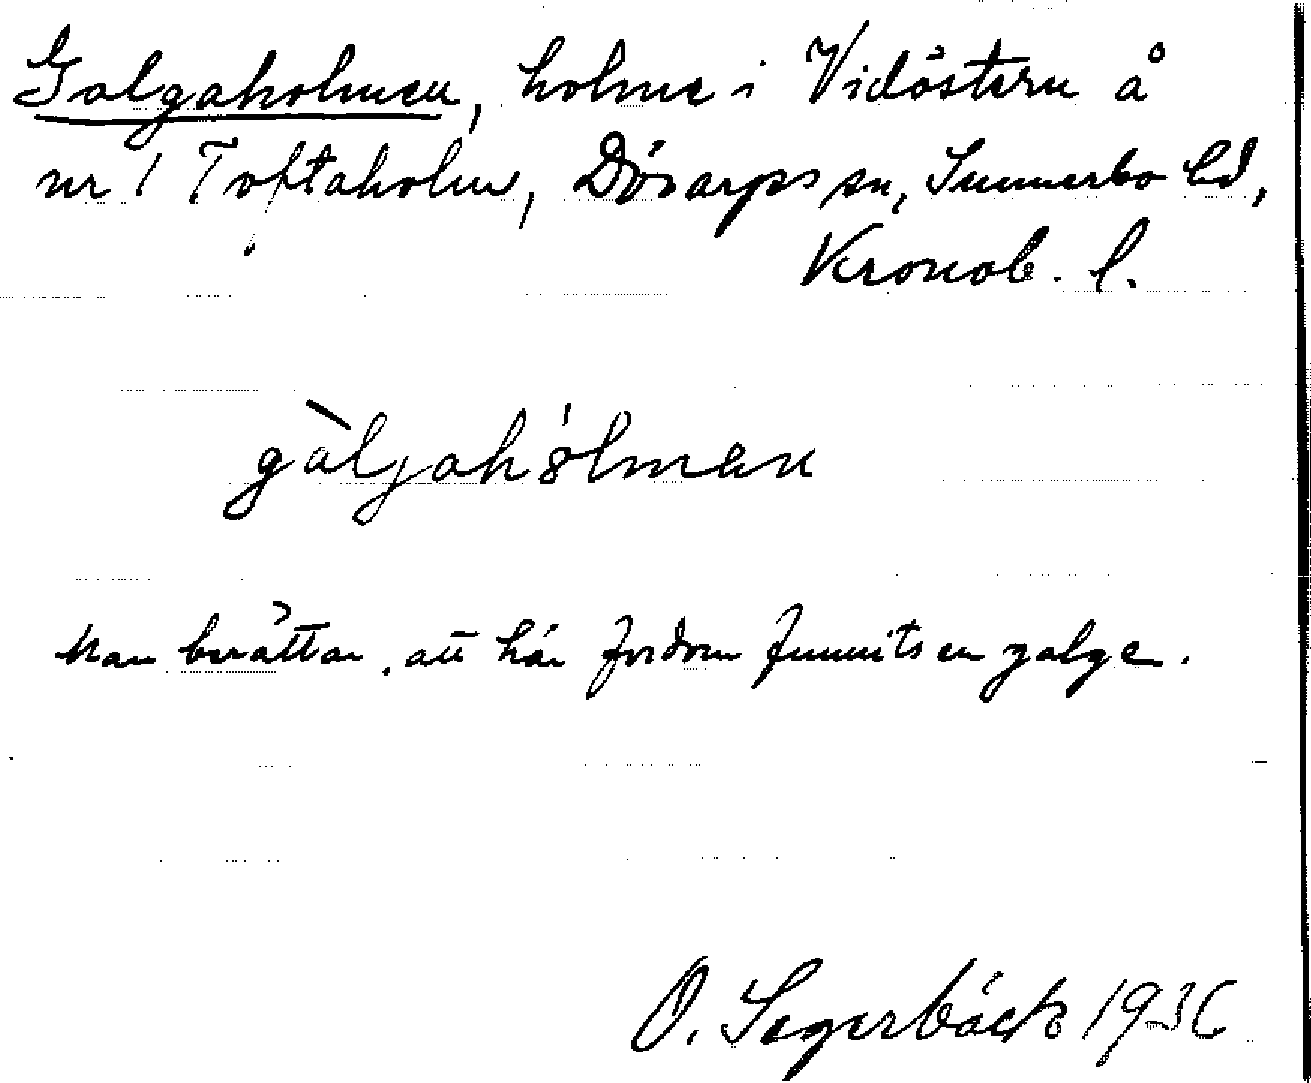 Galgaholmen, holme i Vidöstern å
nr 1 Toftaholm, Dörarps sn, Sunnerbo hd,
Kronob. l.
gàljahólmen
Man berättar, att här fordom funnits en galge.
O. Segerbäck 1936